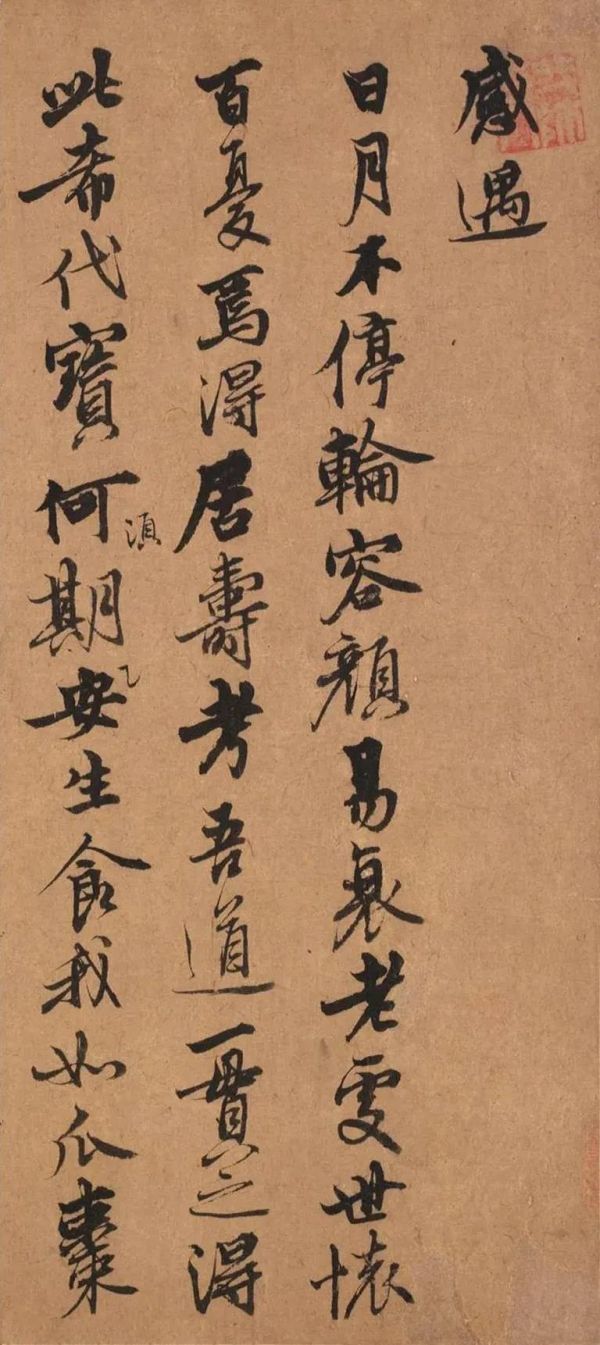 感遇
日月不停輪容顔易衰老處世懷
百憂焉得居壽考吾道一貫之得
此希代寶何湏期安生食我如瓜棗